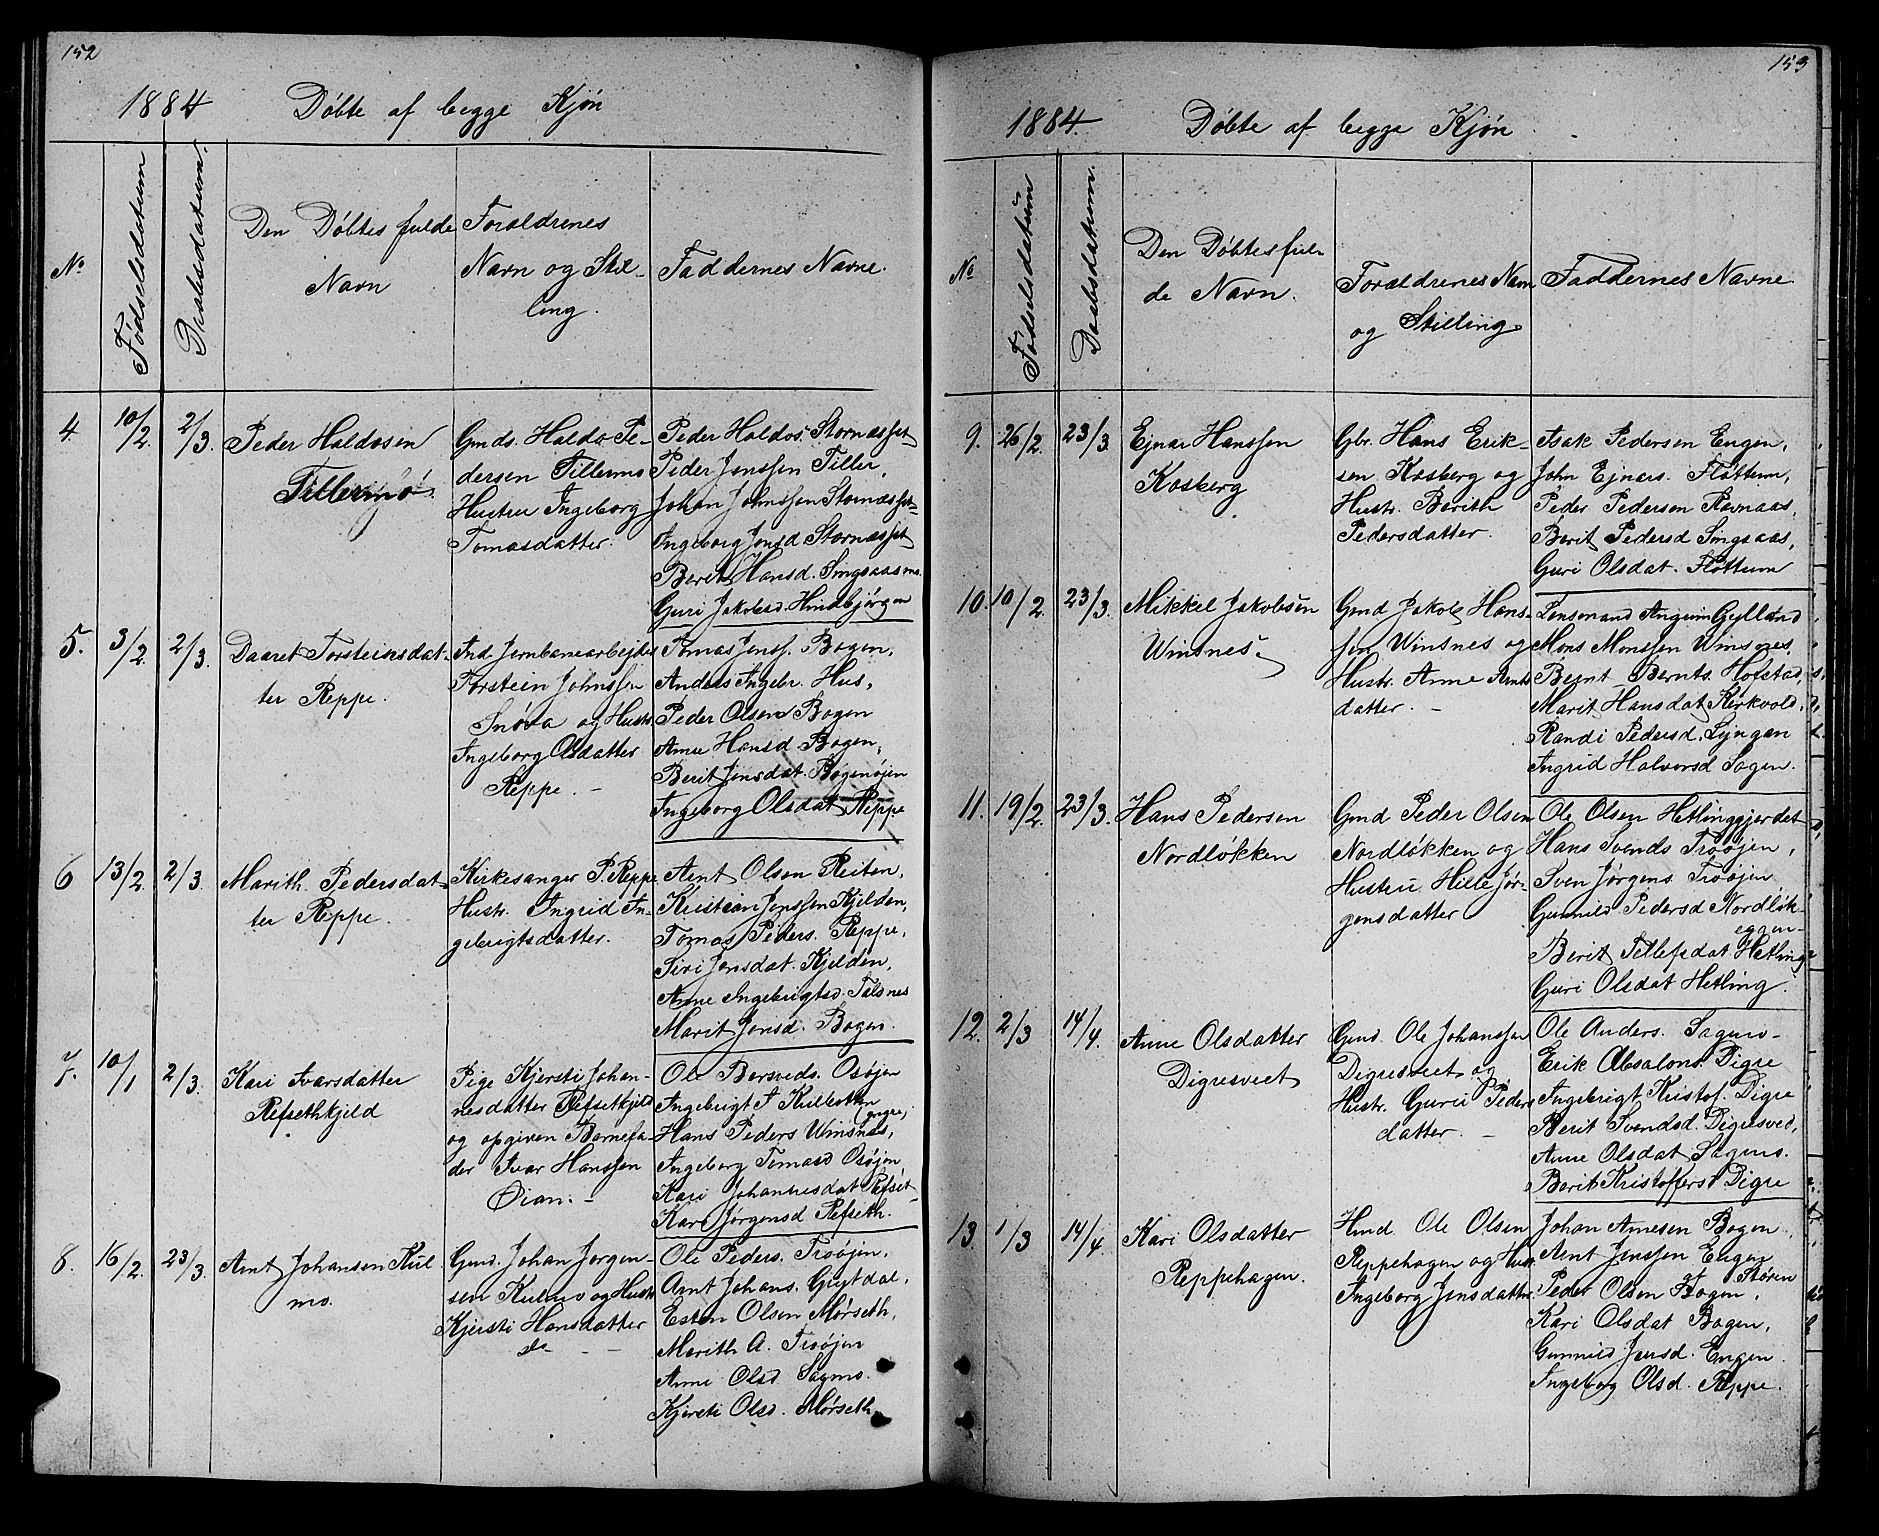 152
1884 Döbte af begge Kjön
No
Fødselsdatum
Daabsdatum.
Den Döbtes fulde
Navn
Forældrenes
Navn og Stil-
ling.
Faddernes Navne.
4 10/2. 2/3. Peder Haldosen
Tillermo.
Gmds. Haldo Pe-
dersen Tillermo
Hustru Ingeborg
Tomasdatter.
Peder Haldos. Stornæsset
Peder Jonssen Tiller,
Johan Johnssen Stornæsset
Ingeborg Jonsd Stornæsset
Berit Hansd. Singsaasmo.
Guri Jakobsd. Hindbjörgen
5. 3/2. 2/3. Daaret Torsteinsdat-
ter Reppe.
Ind. Jernbanearbejder
Torstein Johnssen
Snöva og Hustr
Ingeborg Olsdatter
Reppe. -
Tomas Jenss. Bogen,
Anders Ingebr. Hus,
Peder Olsen Bogen
Anne Hansd Bogen,
Berit Jonsdat. Bogenöjen
Ingeborg Olsdat Reppe
6 13/2. 2/3. Marith. Pedersdat
ter Reppe.
Kirkesanger P. Reppe
Hustr. Ingrid In-
gebrigtsdatter.
Arnt Olsen Reiten,
Kristian Jenssen Kjelden,
Tomas Peders. Reppe,
Siri Jonsdat. Kjelden,
Anne Ingebrigtsd. Talsnes
Marit Jonsd. Bogen.
7. 10/1 2/3. Kari Ivarsdatter
Refsethkjeld
Pige Kjersti Johan-
nesdatter Refsetkjeld
og opgiven Barnefa-
der Ivar Hanssen
Öian. -
Ole Bersveds. Osöjen
Ingebrigt I Kulbotten
Hans Peders Winsnes,
Ingeborg Tomasd Osöjen,
Kari Johannesdat Refset
Kari Jörgensd Refseth.
8. 16/2. 23/3. Arnt Johansen Kul
mo.
Gmd. Johan Jörgen-
sen Kulmo og Hustr
Kjersti Hansdatter
do - -
Ole Peders. Troöjen,
Arnt Johans. Gygtdal,
Esten Olsen Mörseth,
Marith A. Troöjen
Anne Olsd Sagmo.
Kjersti Olsd. Mörseth
153
1884. Döbte af begge Kjön
No
Fødselsdatum
Daabsdatum.
Den Döbtes ful-
de Navn.
Forældrenes Navn
og Stilling
Faddernes Navne
9. 26/2. 23/3. Ejnar Hanssen
Kosberg
Gbr. Hans Erik-
sen Kosberg og
Hustr. Berith
Pedersdatter.
Isak Pedersen Engen,
John Ejnars. Flöttum,
Peder Pedersen Ravnaas,
Berit Pedersd Singsaas,
Guri Olsdat. Flöttum
10. 10/2. 23/3. Mikkel Jakobsen
Winsnes.
Gmd Jakob Hans-
sen Winsnes og
Hustr. Anne Arnts
datter. -
Lensmand Angrim Gylland
Mons Monssen Winsnes,
Bernt Bernts. Hofstad,
Marit Hansdat Kirkvold,
Randi Pedersd. Lyngen
Ingrid Halvorsd Sogen.
11. 19/2. 23/3. Hans Pedersen
Nordlökken
Gmd Peder Olsen
Nordlökken og
Hustru Hille Jör-
gensdatter
Ole Olsen Hetlinggjerdet
Hans Svends Troöjen,
Sven Jörgens Troöjen
Gunnild Pedersd Nordlök-
eggen-
Berit Tillefsdat Hetling
Guri Olsdat Hetling.
12. 2/3 14/4. Anne Olsdatter
Digresveet
Gmd. Ole Johanssen
Digresveet og
Hustr. Guru Peders
datter. -
Ole Anders. Sagmo-
Erik Absalons. Digre
Ingebrigt Kristof. Digre
Berit Svendsd. Digresved,
Anne Olsdat Sagmo.
Berit Kristoffersd Digre
13. 1/3 14/4. Kari Olsdatter
Reppehagen.
Hmd Ole Olsen
Reppehagen og Hust
Ingeborg Jonsdatter.
Johan Arnesen Bogen,
Arnt Jenssen Engen
Peder Olsen Bogen, Stören
Kari Olsdat Bogen,
Gunnild Jensd. Engen
Ingeborg Olsd. Reppe.